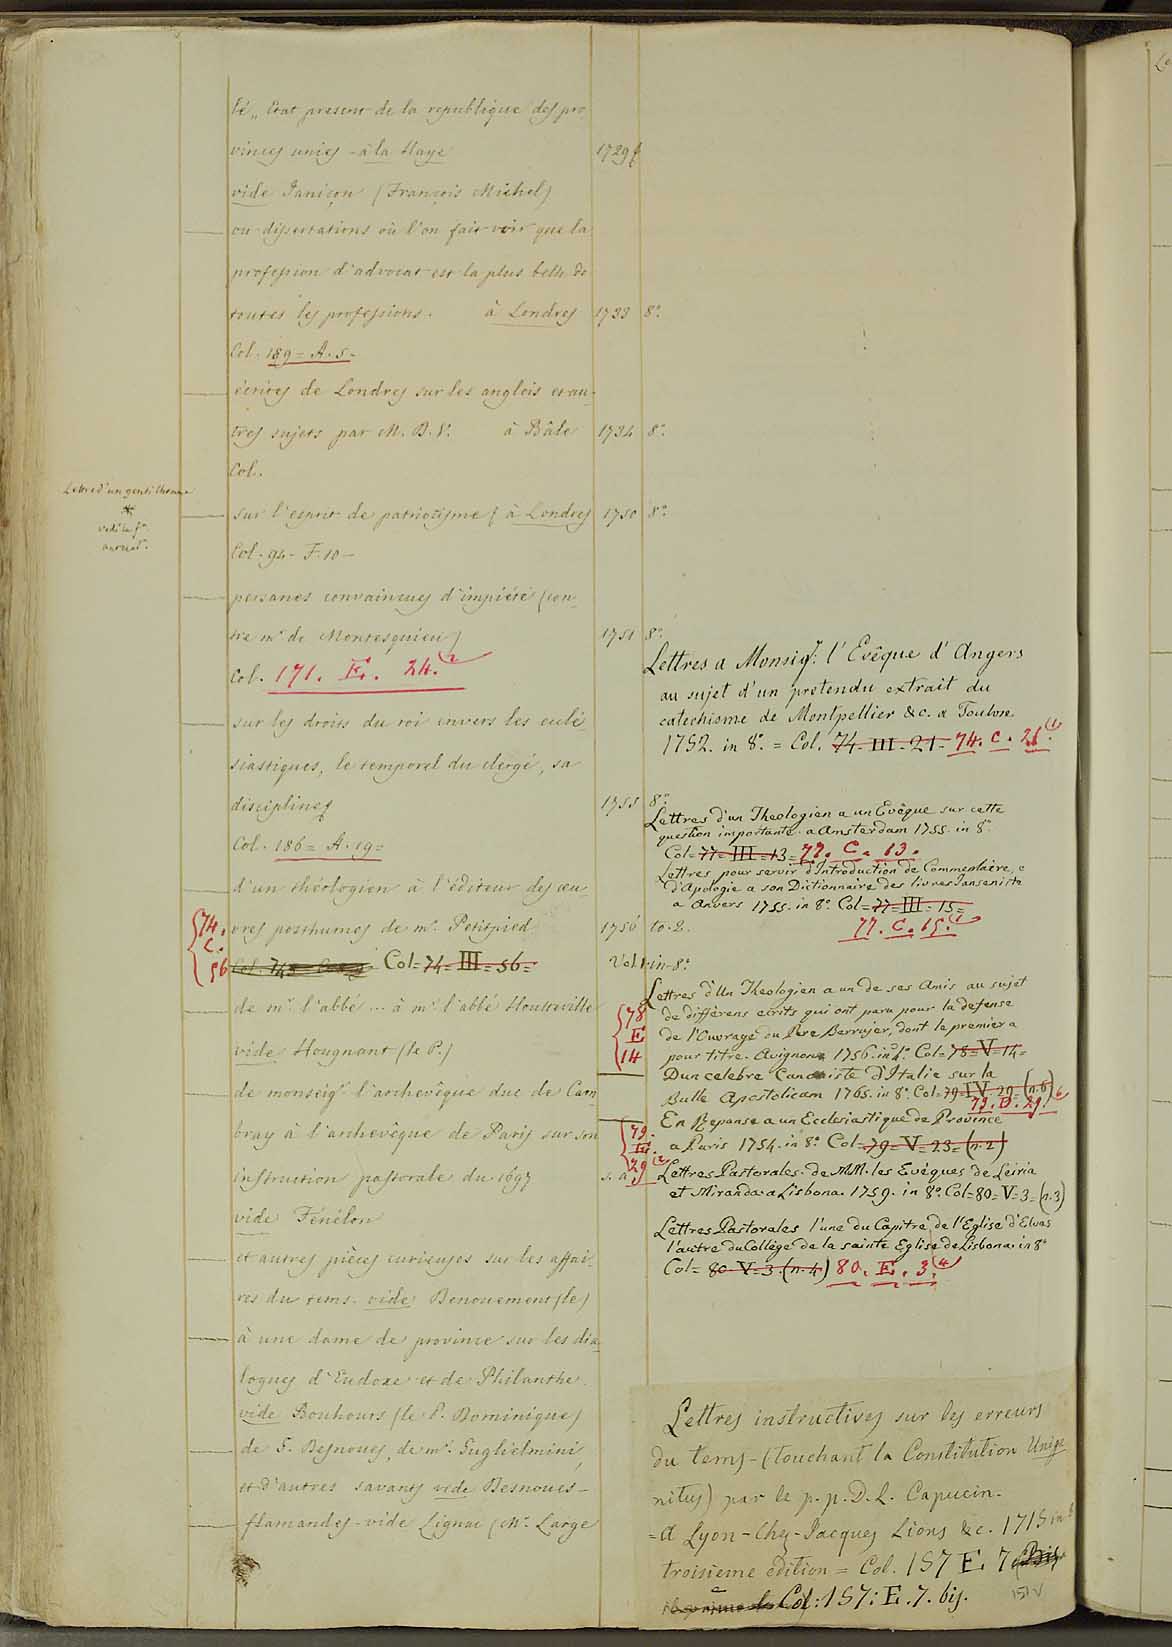 té„ Etat present de la republique des pro
vinces unies - à la Haye 1729
vide Janiçon (François Michel)
ou dissertations où l'on fait voir que la
profession d'advocat est la plus belle de
toutes les professions. à Londres 1733 8°.
Col. 189 = A. 5.
écrites de Londres sur les anglois et au-
tres sujets par M. D. V. à Bâle 1734 8°.
Col.
Lettre d'un gentilhomme
sur l'esprit de patriotisme à Londres 1750 8°.
Col. 94 - F. 10 -
persanes convaincues d'impiété (con-
tre mr de Montesquieu) 1751 8°.
Col. 171. E. 24. (2
sur les droits du roi envers les eclé-
siastiques, le temporel du clergé, sa
discipline 1755 8°.
Col. 186 = A. 19 =
d'un théologien à l'éditeur des œu-
vres posthumes de mr. Petitpied 1756 to. 2.
74. C. 56
Col = 74 = III = 56 = Vol. 1 in 8°
de mr l'abbé ... à mr l'abbé Houtteville
vide Hougnant (le P.)
de monseigr l'archevêque duc de Cam
bray à l'archevêque de Paris sur son
instruction pastorale du 1697 s. a
vide Fénélon
et autres pièces curieuses sur les affai-
res du tems. vide Denouement (le)
à une dame de province sur les dia-
logues d'Eudoxe et de Philanthe.
vide Bouhours (le P. Dominique)
de G. Desnoues, de mr. Guglielmini,
et d'autres savants vide Desnoues -
flamandes - vide Lignac (Mr. Large
Lettres a Monsigr: l'Evêque d'Angers
au sujet d'un pretendu extrait du
catechisme de Montpellier &c. a Toulose.
1752. in 8°. = Col. 74. III. 21. 74. C. 21. (1
Lettres d'un Theologien a un Evêque sur cette
question importante. a Amsterdam 1755. in 8°.
Col = 77 = III = 13 = 77. C. 13.
Lettres pour servir d'Introduction de Commentaire, e
d'Apologie a son Dictionnaire des livres Janseniste
a Anvers 1755. in 8°. Col = 77 = III = 15 =
77. C. 15. (1
Lettres d'Un Theologien a un de ses Amis au sujet
de différens ecrits qui ont paru pour la defense
78 E 14
de l'Ouvrage du Pere Berrujer, dont le premier a
pour titre. Avignon 1756. in 4°. Col = 78 = V = 14 =
D'un celebre Canoniste d'Italie sur la
Bulle Apostolicam 1765. in 8°. Col = 79 = IV = 29 = (n. 6)
79. D. 29. 6
En Reponse a un Ecclesiastique de Province
a Paris 1754. in 8°. Col = 79 = V = 23 = (n. 2)
79. E. 29 (2
Lettres Pastorales de MM. les Evêques de Leiria
et Miranda. a Lisbona. 1759. in 8°. Col = 80 = V = 3 = (n. 3)
Lettres Pastorales l'une du Capitre de l'Eglise d'Elvas
l'autre du Collège de la sainte Eglise de Lisbona. in 8°
Col = 80. V = 3. (n. 4) 80. E. 3. (4
Lettres instructives sur les erreurs
du tems - (touchant la Constitution Unige
nitus) par le p. p. D. L. Capucin.
= A Lyon - Chez Jacques Lions &c. 1715 in 8
troisième édition = Col. 157 E 7
Col: 157: E. 7. bis.
151v